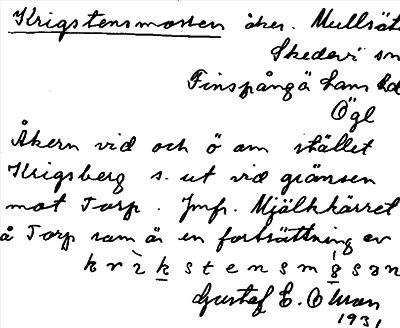 Krigstensmossen åker. Mullsät
Skedevi sn
Finspånga läns hd
Ögl
Åkern vid och ö om stället
Krigsberg s. ut vid gränsen
mot Torp. Jmf. Mjölkkärret
å Torp som är en fortsättning av
Gustaf E. Olsson
1931